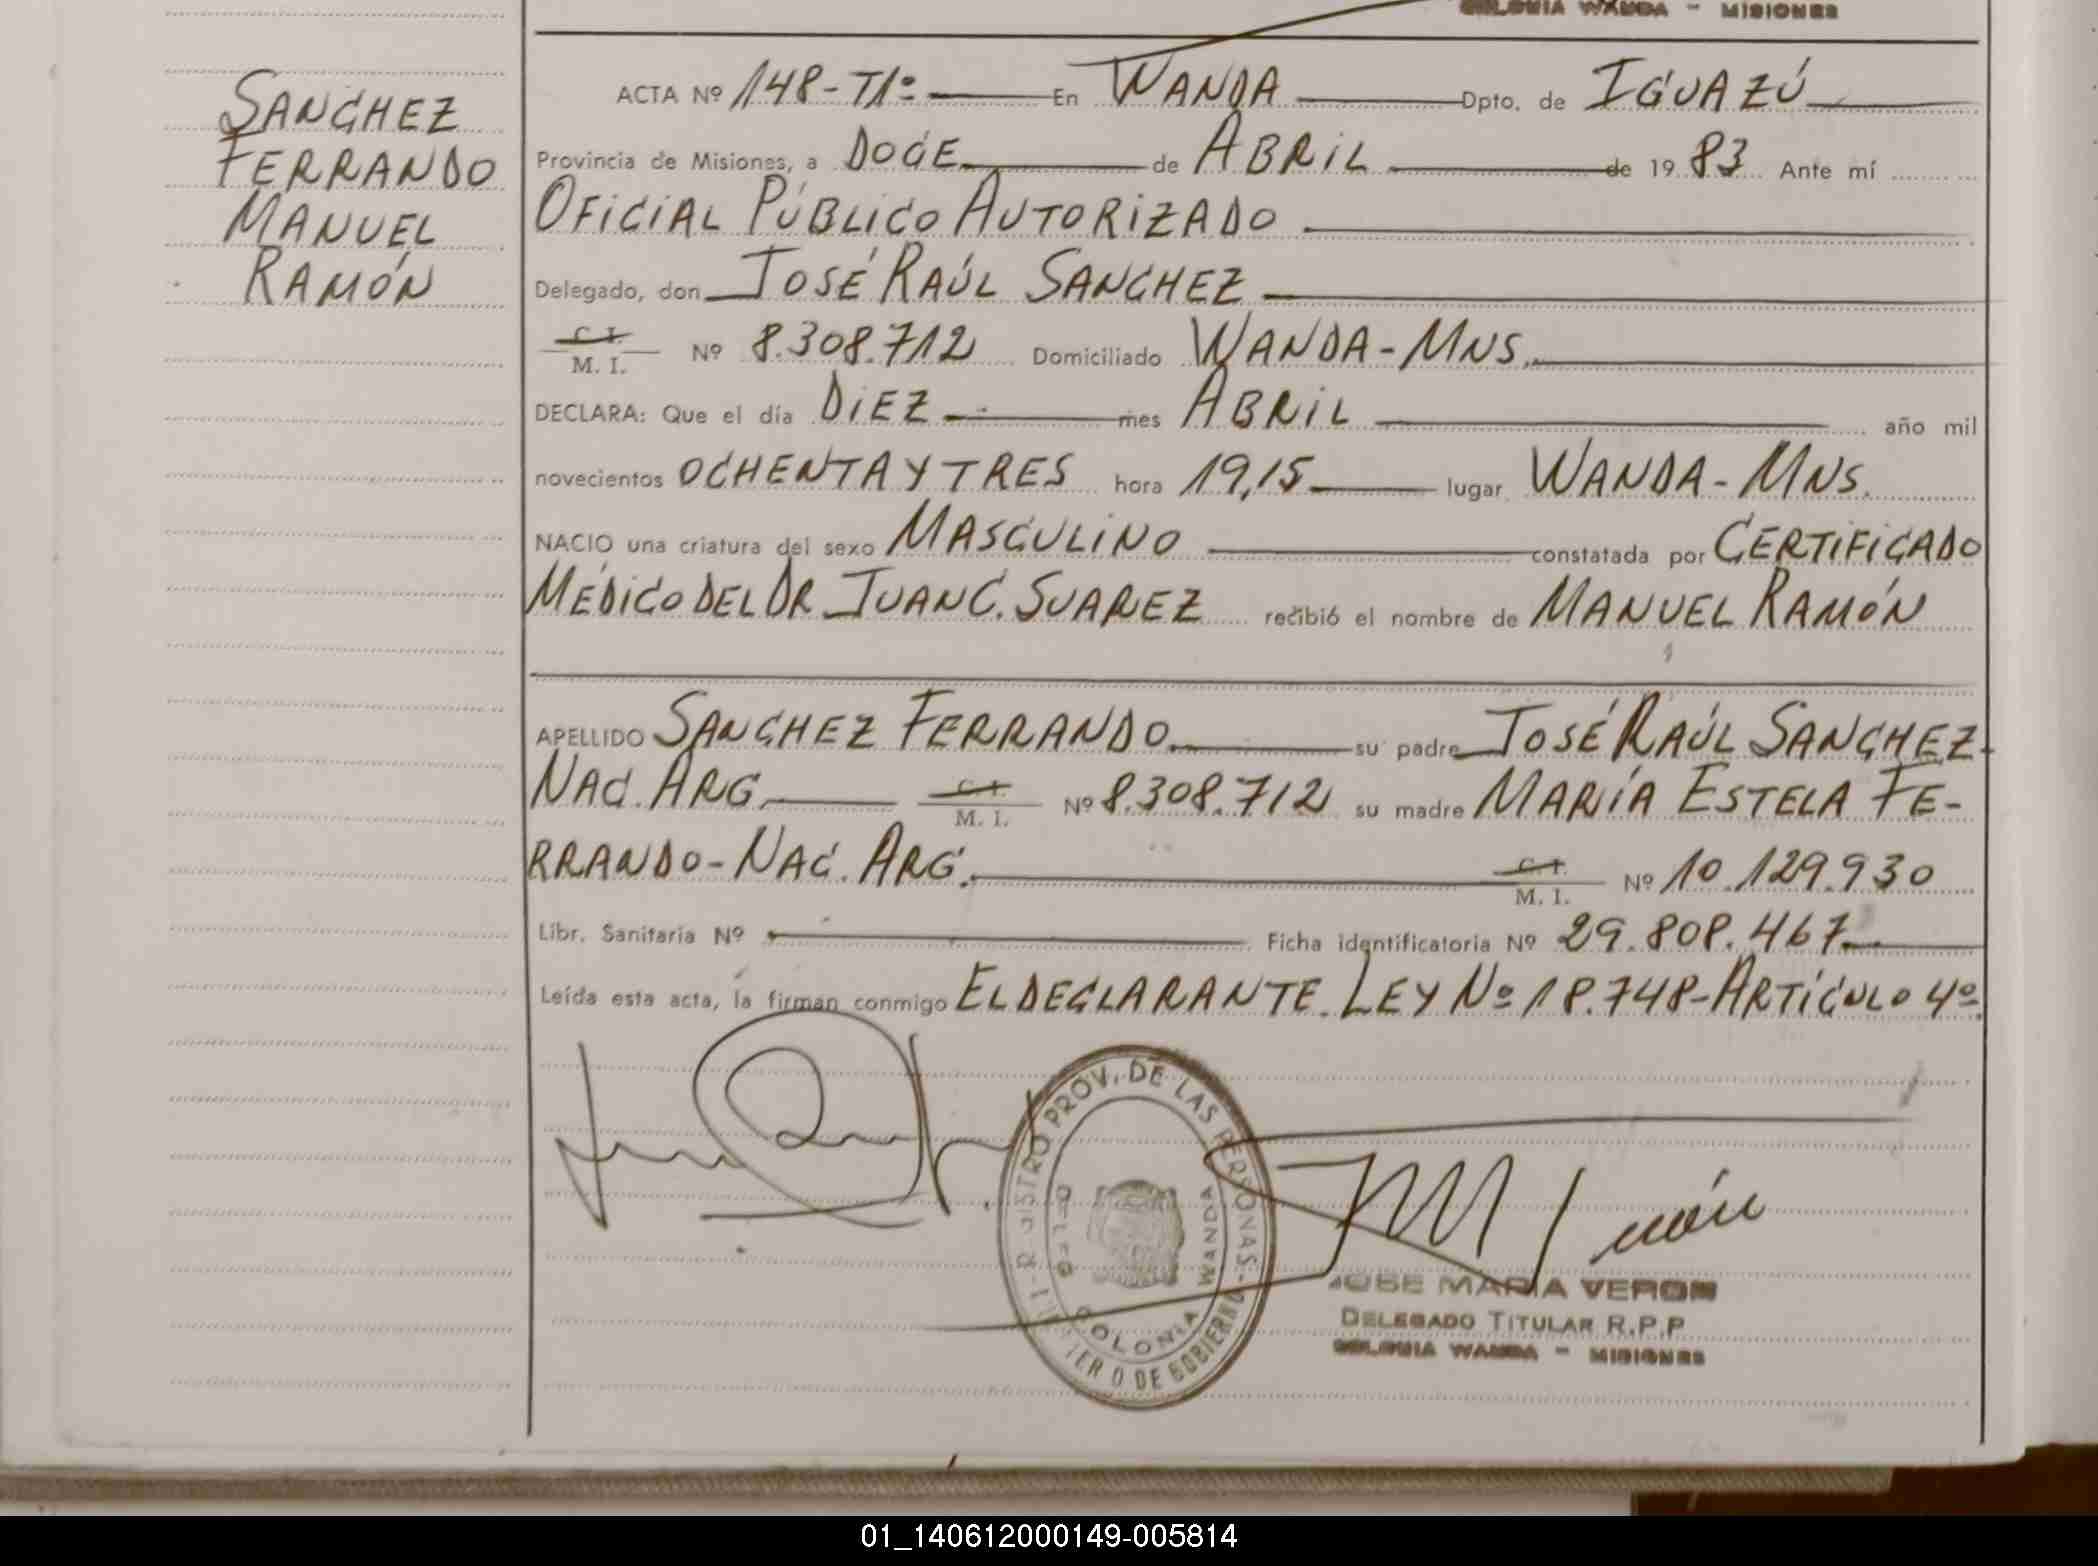 COLONIA WANDA - MISIONES
SANCHEZ
FERRANDO
MANUEL
RAMÓN
ACTA Nº 148-T1º En WANDA Dpto. de IGUAZÚ
Provincia de Misiones, a DOCE de ABRIL de 1983 Ante mí
OFICIAL PÚBLICO AUTORIZADO
Delegado, don JOSÉ RAÚL SANCHEZ
C. I.
M. I. Nº 8.308.712 Domiciliado WANDA-MNS.
DECLARA: Que el día DIEZ mes ABRIL año mil
novecientos OCHENTA Y TRES hora 19,15 lugar WANDA-MNS.
NACIO una criatura del sexo MASCULINO constatada por CERTIFICADO
MÉDICO DEL DR JUAN C. SUAREZ recibió el nombre de MANUEL RAMÓN
APELLIDO SANCHEZ FERRANDO su padre JOSÉ RAÚL SANCHEZ-
NAC. ARG C. I. M. I. Nº 8.308.712 su madre MARÍA ESTELA FE-
RRANDO-NAC. ARG. C. I. M. I. Nº 10.129.930
Libr. Sanitaria Nº Ficha identificatoria Nº 29.808.467
Leída esta acta, la firman conmigo EL DECLARANTE. LEY Nº 18.748-ARTÍCULO 4º.
PROV. DE LAS PERSONAS
DE GOBIERNO
COLONIA WANDA
JOSE MARIA VERON
DELEGADO TITULAR R.P.P
COLONIA WANDA - MISIONES
01_140612000149-005814